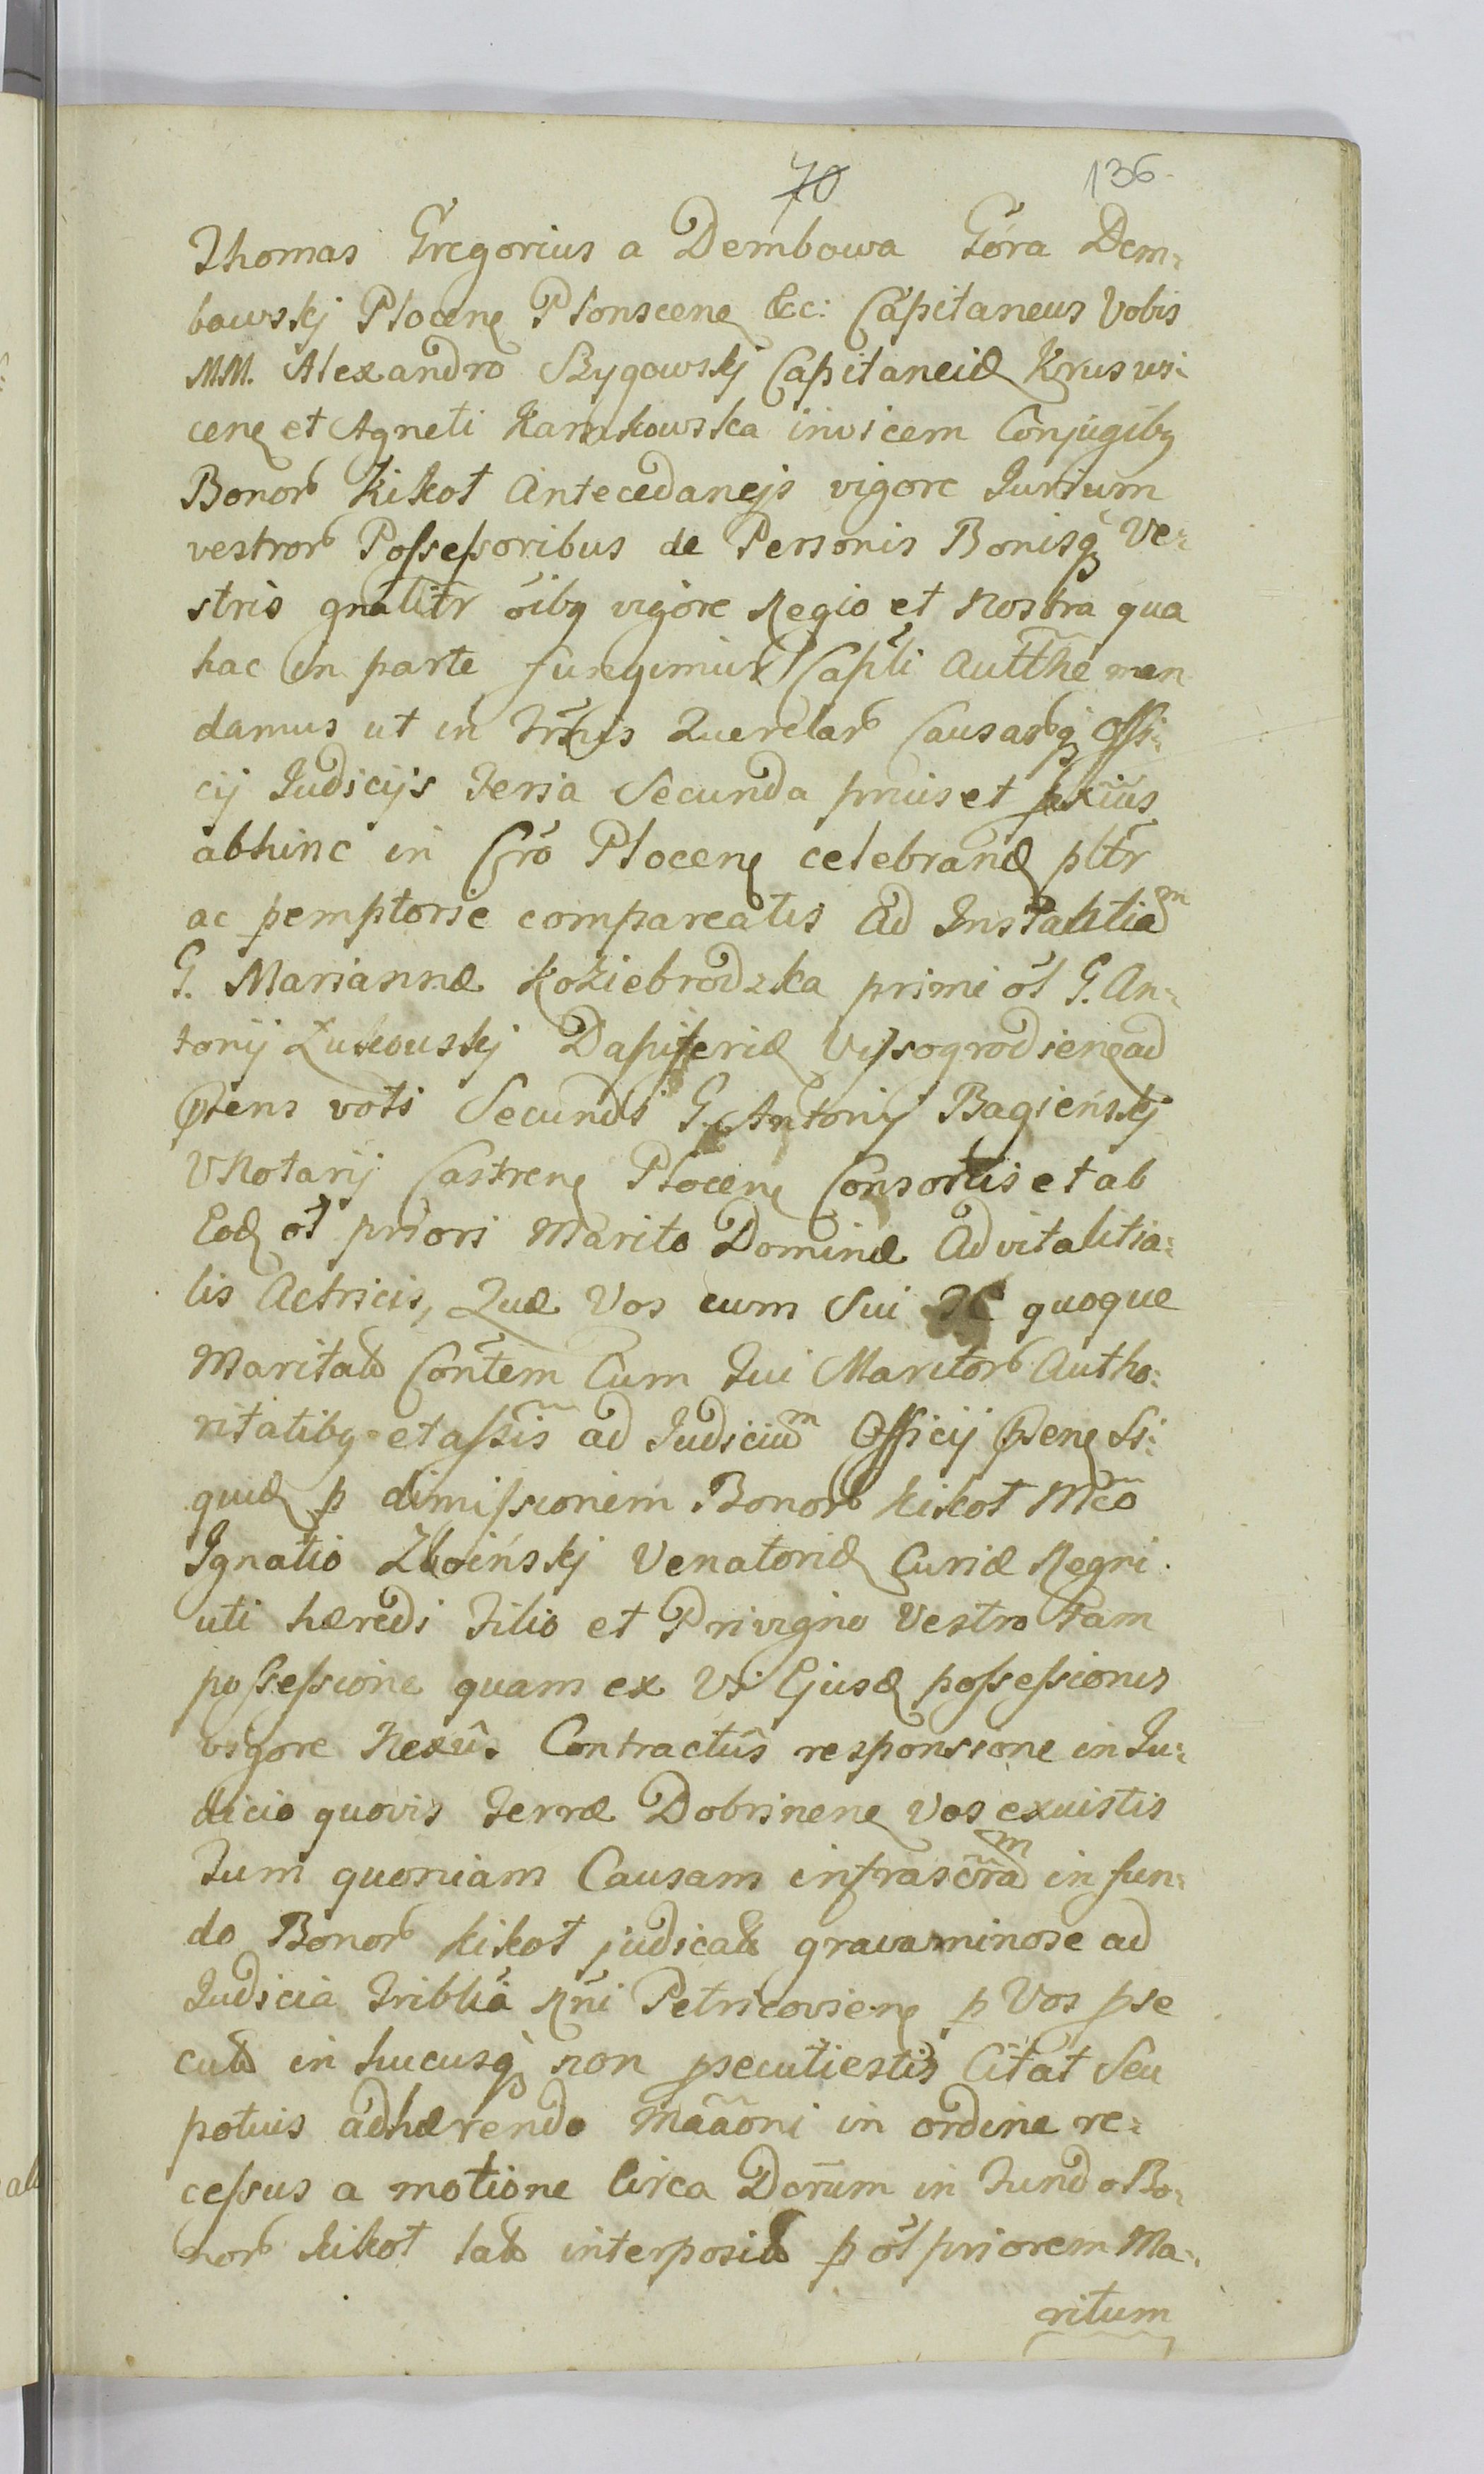 70 136.
Thomas Gregorius a Dembowa Góra Dem:
bowskj Płocenę Płonscenę &c: Capitaneus Vobis
MM. Alexandro Szygowskj Capitaneidę Kruswi:
cenę et Agneti Kamkowska invicem Conjugibꝫ
Bonorꝭ Kikoł Antecedanejs vigore Jurium
vestrorꝭ Poſseſsoribus de Personis Bonisqꝫ Ve:
stris gnãlitr õibꝫ vigore Regio et Nostra qua
hac in parte fungimur Caplĩ Autthẽ man
damus ut in Querelarꝭ Causarꝭqꝫ Offi:
cij Judicijs Feria Secunda prius et pxĩus
abhinc in Crõ Płocenę celebrandę pltr̃
ac pemptorie compareatis Ad Instantiam
G. Mariannæ Koziebrodzka primi ol̃ G. An:
tonij Zukowskj Dapiferidę Vyſsogrodienę ad
pñtens voti Secundi G. Antonij Bagieńskj
VNotarij Castrenę Płocenę Consortis et ab
Eodę ol̃ priori Marito Dominæ Advitalitia:
lis Actricis, Quæ Vos cum Sui quoque
Maritalꝭ Contẽm Cum Tui Maritorꝭ Autho:
ritatibꝫ et aſsiñ ad Judicium Officij pñsenę Si:
quidę p dimiſsionem Bonorꝭ Kikoł Mcõ
Ignatio Zboińskj Venatoridę Curiæ Regni
uti hæredi Filio et Privigno Vestro tam
poſseſsione quam ex Vi Ejusdę poſseſsionis
vigore Nexûs Contractûs responsione in Ju:
dicio quovis Terræ Dobrinenę Vos exuistis
Tum quoniam Causam infrascr̃am in fun:
do Bonorꝭ Kikoł judicatꝭ gravaminose ad
Judicia Triblĩa Rñi Petricovienę p Vos pse
cutꝭ in hucusqꝫ non psecutiestis Citat Seu
potius adhærendo Mãaõni in ordine re:
ceſsus a motione circa Dorũm in Fundo Bo:
norꝭ Kikoł latꝭ interpositꝭ p ol̃ priorem Ma:
ritum